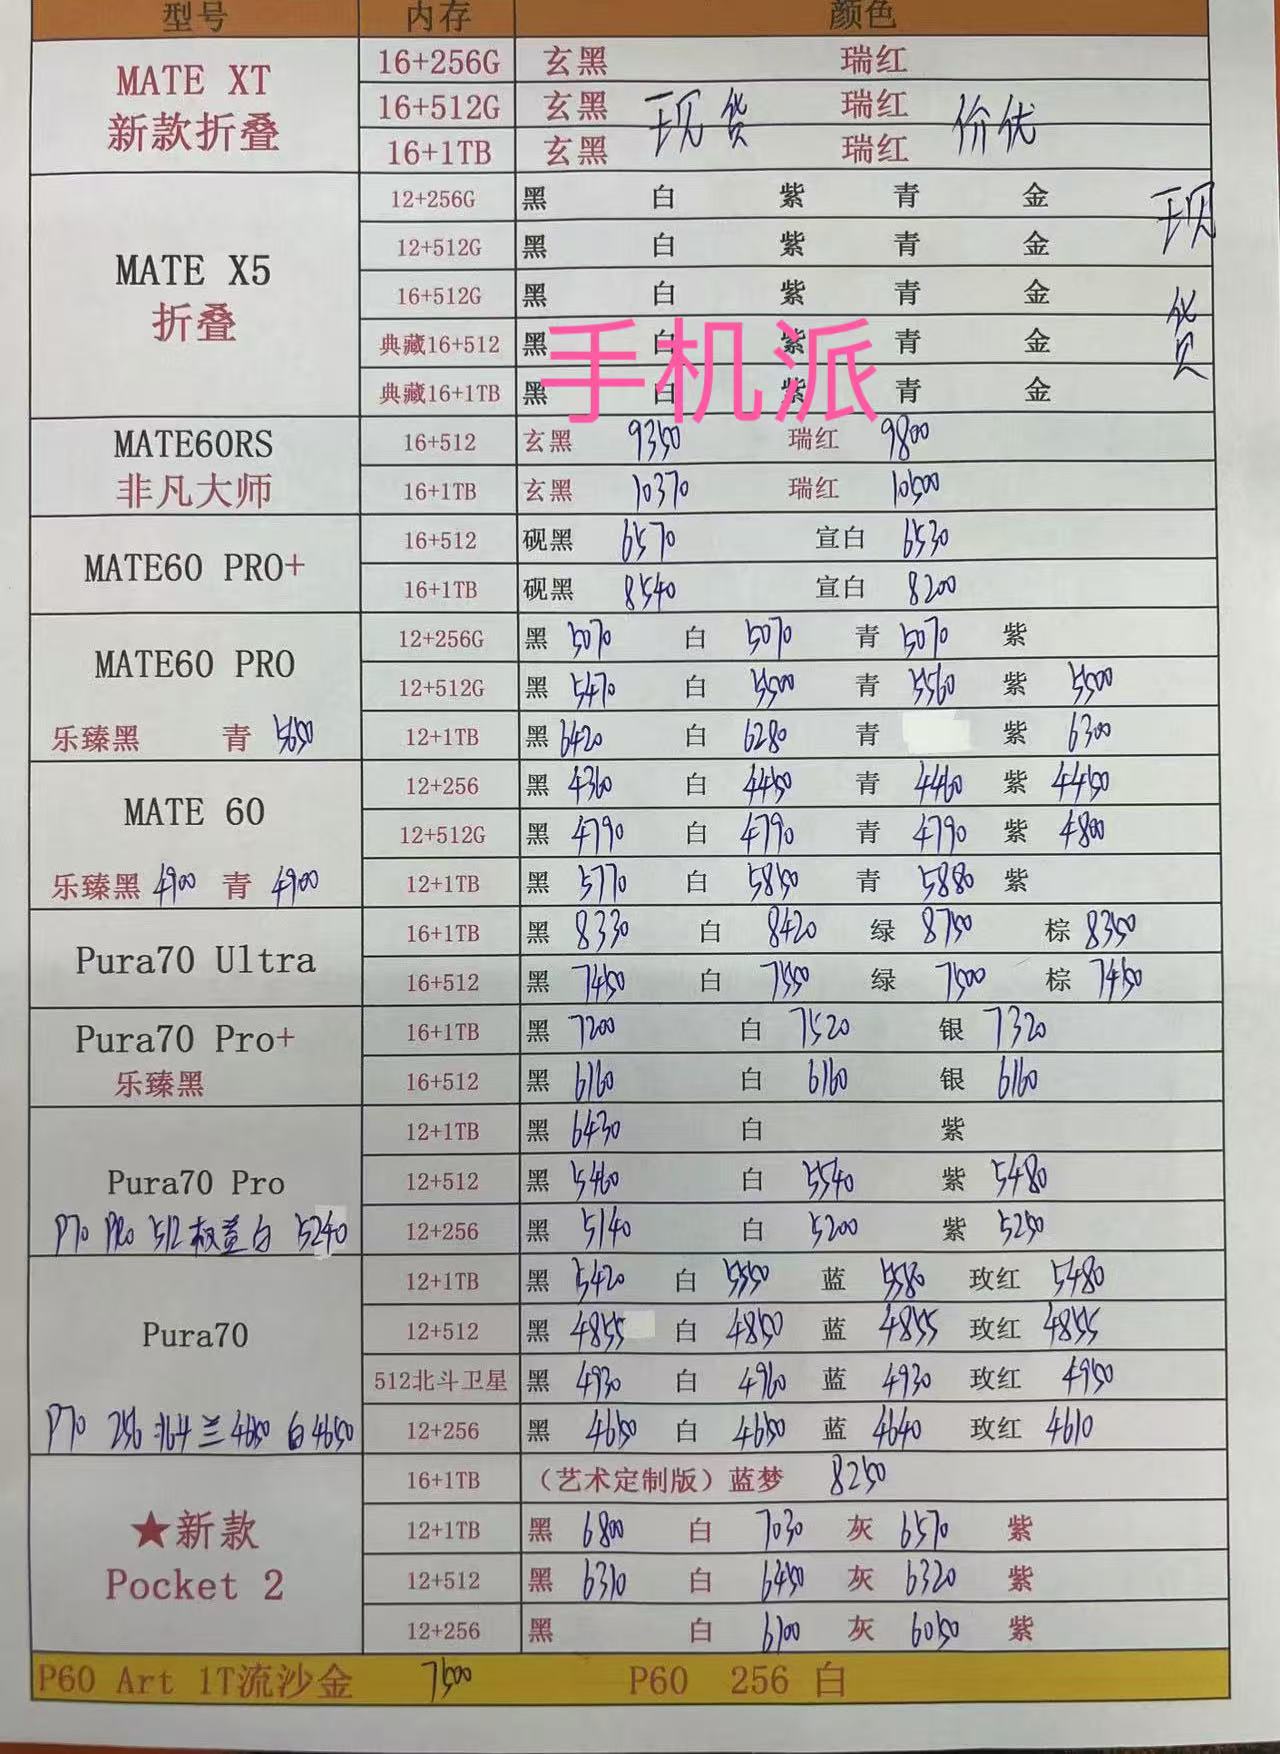 型号 内存 颜色
MATE XT 新款折叠
16+256G 玄黑 瑞红
16+512G 玄黑 现货 瑞红 价优
16+1TB 玄黑 瑞红
MATE X5 折叠
12+256G 黑 白 紫 青 金 现货
12+512G 黑 白 紫 青 金
16+512G 黑 白 紫 青 金
典藏16+512 黑 白 紫 青 金
典藏16+1TB 黑 白 紫 青 金
手机派
MATE60RS 非凡大师
16+512 玄黑 9350 瑞红 9800
16+1TB 玄黑 10370 瑞红 10500
MATE60 PRO+
16+512 砚黑 6570 宣白 6530
16+1TB 砚黑 8540 宣白 8200
MATE60 PRO
12+256G 黑 5070 白 5070 青 5070 紫
12+512G 黑 5470 白 5500 青 5560 紫 5500
乐臻黑 青 5650
12+1TB 黑 6420 白 6280 青 紫 6300
MATE 60
12+256 黑 4360 白 4450 青 4460 紫 4450
12+512G 黑 4790 白 4790 青 4790 紫 4800
乐臻黑 4900 青 4900
12+1TB 黑 5770 白 5850 青 5880 紫
Pura70 Ultra
16+1TB 黑 8330 白 8420 绿 8750 棕 8350
16+512 黑 7450 白 7550 绿 7500 棕 7450
Pura70 Pro+
乐臻黑
16+1TB 黑 7200 白 7520 银 7320
16+512 黑 6160 白 6160 银 6160
Pura70 Pro
12+1TB 黑 6430 白 紫
12+512 黑 5460 白 5540 紫 5480
P70 PRO 512 白 5240
12+256 黑 5140 白 5200 紫 5250
Pura70
12+1TB 黑 5420 白 5550 蓝 5580 玫红 5480
12+512 黑 4855 白 4850 蓝 4855 玫红 4855
512北斗卫星 黑 4930 白 4960 蓝 4930 玫红 4950
P70 256 北斗 兰 4650 白 4650
12+256 黑 4650 白 4650 蓝 4640 玫红 4610
★新款 Pocket 2
16+1TB （艺术定制版）蓝梦 8250
12+1TB 黑 6800 白 7030 灰 6570 紫
12+512 黑 6310 白 6450 灰 6320 紫
12+256 黑 白 6100 灰 6050 紫
P60 Art 1T流沙金 7500 P60 256 白